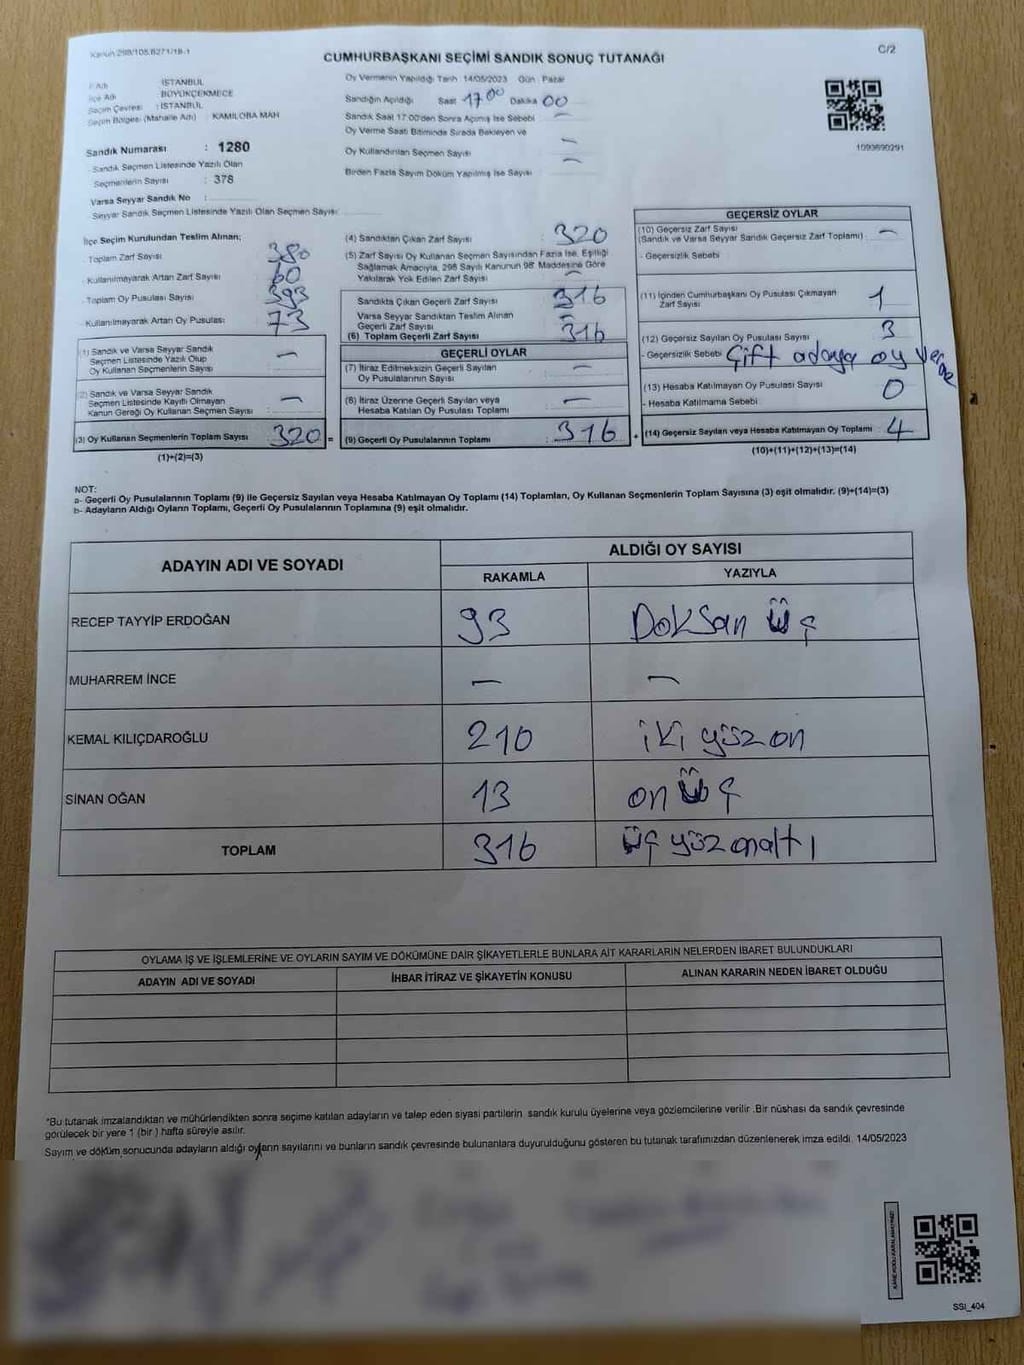 Kanun 298/105,6271/18-1
C/2
CUMHURBAŞKANI SEÇİMİ SANDIK SONUÇ TUTANAĞI
İl Adı : İSTANBUL
İlçe Adı : BÜYÜKÇEKMECE
Seçim Çevresi : İSTANBUL
Seçim Bölgesi (Mahalle Adı) : KAMİLOBA MAH
Sandık Numarası : 1280
Sandık Seçmen Listesinde Yazılı Olan
Seçmenlerin Sayısı : 378
Varsa Seyyar Sandık No :
Seyyar Sandık Seçmen Listesinde Yazılı Olan Seçmen Sayısı :
Oy Vermenin Yapıldığı Tarih : 14/05/2023 Gün : Pazar
Sandığın Açıldığı Saat 17 00 Dakika 00
Sandık Saat 17:00'den Sonra Açılmış İse Sebebi —
Oy Verme Saati Bitiminde Sırada Bekleyen ve
Oy Kullandırılan Seçmen Sayısı —
Birden Fazla Sayım Döküm Yapılmış İse Sayısı —
1093690291
İlçe Seçim Kurulundan Teslim Alınan;
Toplam Zarf Sayısı : 380
Kullanılmayarak Artan Zarf Sayısı : 60
Toplam Oy Pusulası Sayısı : 393
Kullanılmayarak Artan Oy Pusulası : 73
(1) Sandık ve Varsa Seyyar Sandık
Seçmen Listesinde Yazılı Olup
Oy Kullanan Seçmenlerin Sayısı : —
(2) Sandık ve Varsa Seyyar Sandık
Seçmen Listesinde Kayıtlı Olmayan
Kanun Gereği Oy Kullanan Seçmen Sayısı : —
(3) Oy Kullanan Seçmenlerin Toplam Sayısı : 320 =
(1)+(2)=(3)
(4) Sandıktan Çıkan Zarf Sayısı : 320
(5) Zarf Sayısı Oy Kullanan Seçmen Sayısından Fazla İse, Eşitliği
Sağlamak Amacıyla, 298 Sayılı Kanunun 98. Maddesine Göre
Yakılarak Yok Edilen Zarf Sayısı : —
Sandıkta Çıkan Geçerli Zarf Sayısı : 316
Varsa Seyyar Sandıktan Teslim Alınan
Geçerli Zarf Sayısı : —
(6) Toplam Geçerli Zarf Sayısı : 316
GEÇERLİ OYLAR
(7) İtiraz Edilmeksizin Geçerli Sayılan
Oy Pusulalarının Sayısı : —
(8) İtiraz Üzerine Geçerli Sayılan veya
Hesaba Katılan Oy Pusulası Toplamı : —
(9) Geçerli Oy Pusulalarının Toplamı : 316 +
GEÇERSİZ OYLAR
(10) Geçersiz Zarf Sayısı : —
(Sandık ve Varsa Seyyar Sandık Geçersiz Zarf Toplamı)
- Geçersizlik Sebebi
(11) İçinden Cumhurbaşkanı Oy Pusulası Çıkmayan
Zarf Sayısı : 1
(12) Geçersiz Sayılan Oy Pusulası Sayısı : 3
- Geçersizlik Sebebi Çift adaya oy verme
(13) Hesaba Katılmayan Oy Pusulası Sayısı : 0
- Hesaba Katılmama Sebebi :
(14) Geçersiz Sayılan veya Hesaba Katılmayan Oy Toplamı : 4
(10)+(11)+(12)+(13)=(14)
NOT:
a- Geçerli Oy Pusulalarının Toplamı (9) ile Geçersiz Sayılan veya Hesaba Katılmayan Oy Toplamı (14) Toplamları, Oy Kullanan Seçmenlerin Toplam Sayısına (3) eşit olmalıdır. (9)+(14)=(3)
b- Adayların Aldığı Oyların Toplamı, Geçerli Oy Pusulalarının Toplamına (9) eşit olmalıdır.
ADAYIN ADI VE SOYADI ALDIĞI OY SAYISI
RAKAMLA YAZIYLA
RECEP TAYYİP ERDOĞAN 93 Doksan üç
MUHARREM İNCE — —
KEMAL KILIÇDAROĞLU 210 iki yüz on
SİNAN OĞAN 13 on üç
TOPLAM 316 üç yüz onaltı
OYLAMA İŞ VE İŞLEMLERİNE VE OYLARIN SAYIM VE DÖKÜMÜNE DAİR ŞİKAYETLERLE BUNLARA AİT KARARLARIN NELERDEN İBARET BULUNDUKLARI
ADAYIN ADI VE SOYADI İHBAR İTİRAZ VE ŞİKAYETİN KONUSU ALINAN KARARIN NEDEN İBARET OLDUĞU
*Bu tutanak imzalandıktan ve mühürlendikten sonra seçime katılan adayların ve talep eden siyasi partilerin sandık kurulu üyelerine veya gözlemcilerine verilir .Bir nüshası da sandık çevresinde
görülecek bir yere 1 (bir ) hafta süreyle asılır.
Sayım ve döküm sonucunda adayların aldığı oyların sayılarını ve bunların sandık çevresinde bulunanlara duyurulduğunu gösteren bu tutanak tarafımızdan düzenlenerek imza edildi. 14/05/2023
KARE KODU KARALAMAYINIZ!
SSI_404